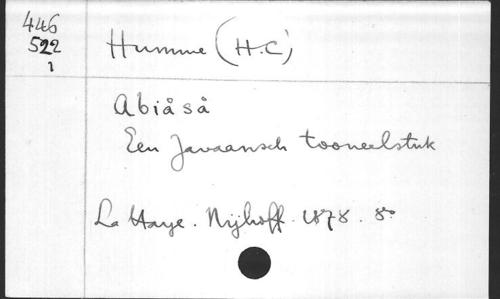 446
522
1
Humme (H.C)
Abiåså
Een Javaansch tooneelstuk
La Haye. Nijhoff. 1878. 8º